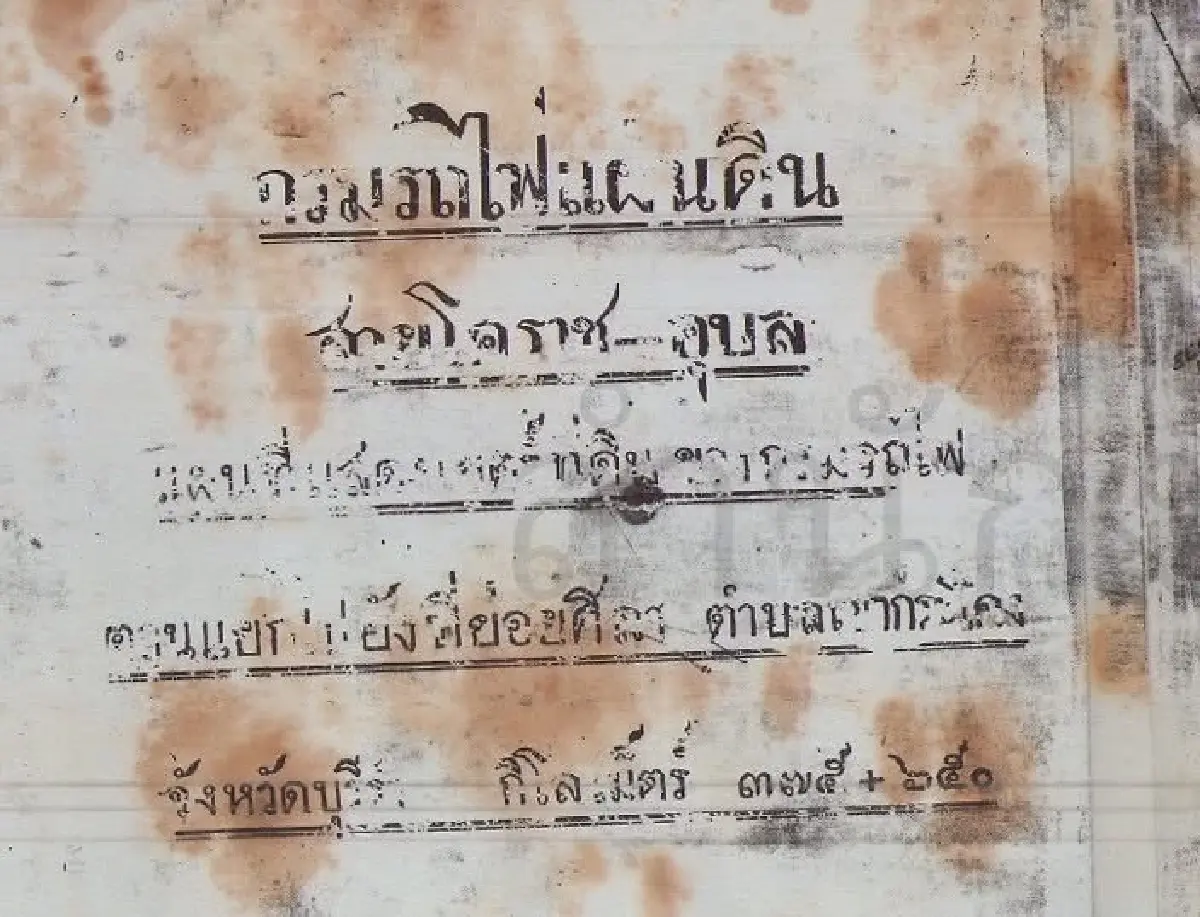 กรมรถไฟแผ่นดิน
สายโคราช—อุบล
แผนที่แสดงเขตร์ที่ดิน ของกรมรถไฟ
ตอนแยกไปยังที่ย่อยศิลา ตำบลเขากระโดง
จังหวัดบุรีรัมย์ กิโลเม็ตร์ ๓๗๕ + ๖๕๐